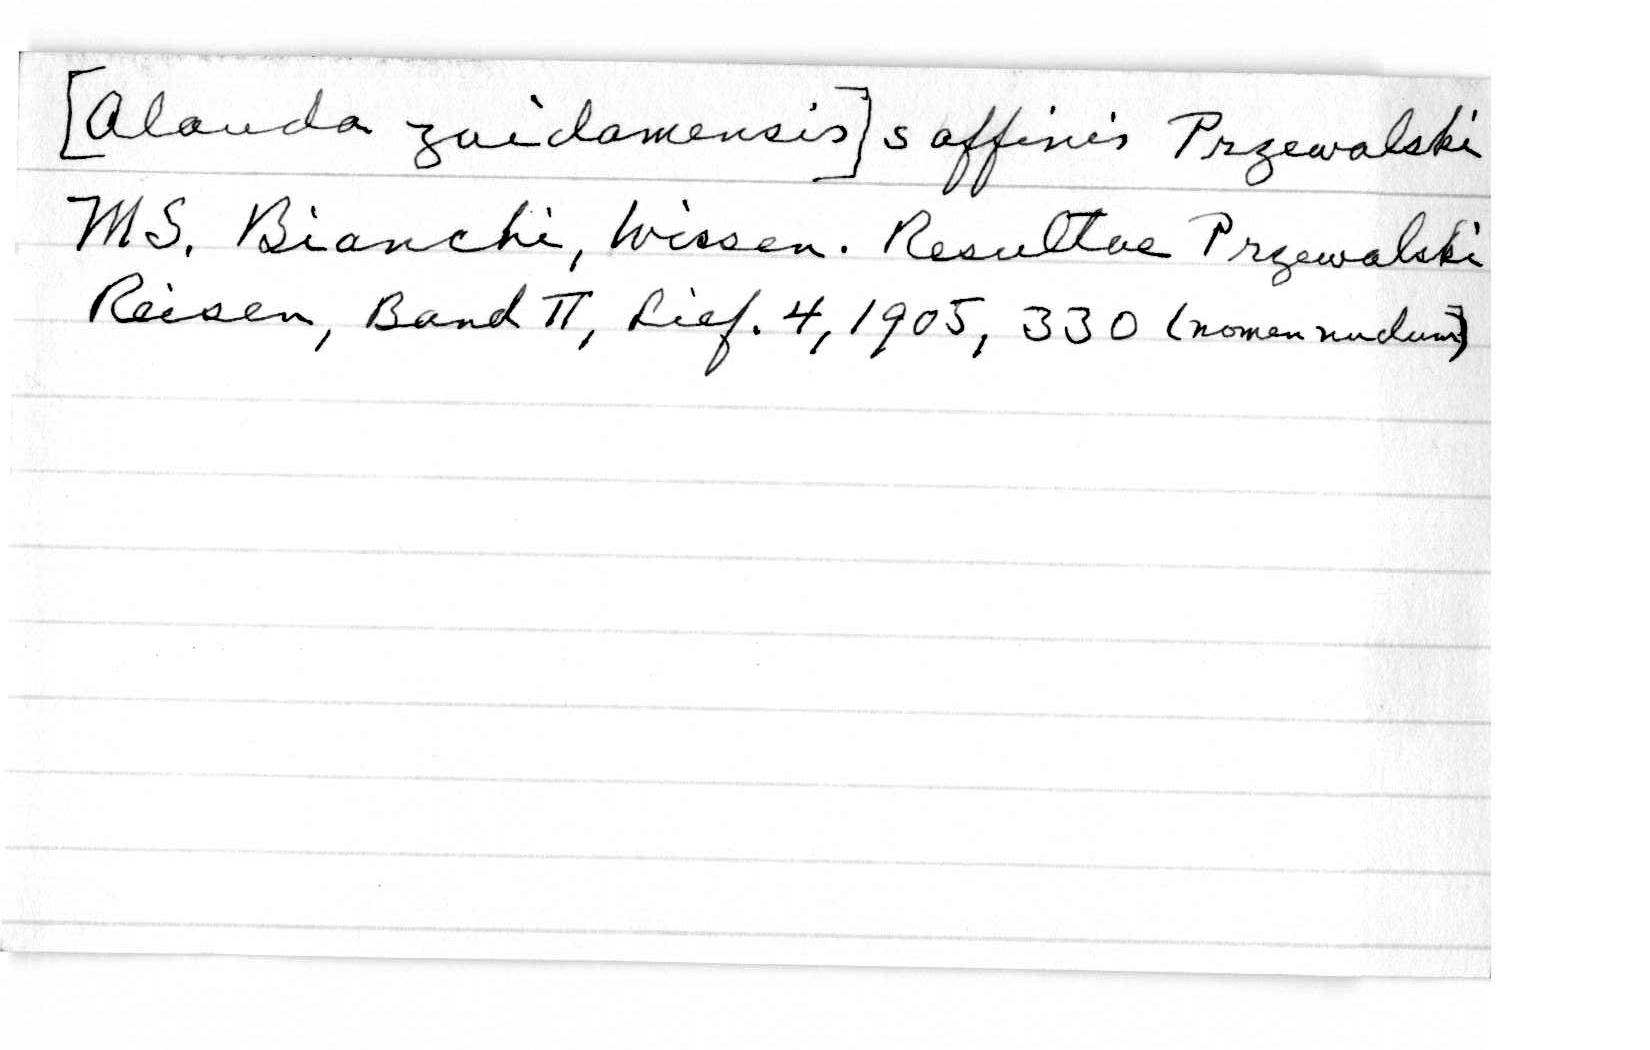 [Alauda zaidamensis] s affinis Przewalski
MS. Bianchi, Wissen. Resultae Przewalski
Reisen, Band II, Lief. 4, 1905, 330 (nomen nudum)